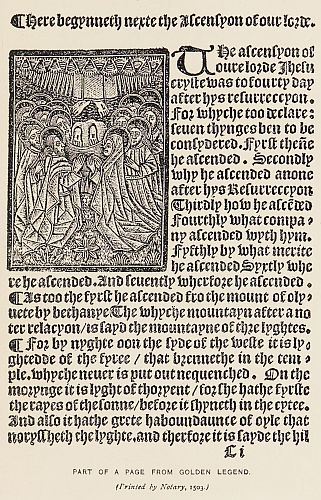 ¶ Here begynneth nexte the Ascensyon of our lorde.
THe ascensyon of
oure lorde Jhesu
cryste was to fourty day
after hys resurreccyon.
For whyche too declare:
seuen thynges ben to be
consydered. Fyrst thēne
he ascended. Secondly
why he ascended anone
after hys Resurreccyon
Thirdly how he ascēded
Fourthly what compa
ny ascended wyth hym.
Fyfthly by what merite
he ascended Syxtly whe
re he ascended. And seuently wherfore he ascended.
¶ As too the fyrst he ascended fro the mount of oly-
uete by bethanye The whyche mountayn after a no
ter relacyon/is sayd the mountayne of thre lyghtes.
¶ For by nyghte oon the syde of the weste it is ly-
ghtedde of the fyree / that brennethe in the tem-
ple. whyche neuer is put out nequenched. On the
morynge it is lyght of thoryent/for she hathe fyrste
the rayes of the sonne/before it shyneth in the cytee.
And also it hathe grete haboundaunce of oyle that
norysheth the lyghte. and therfore it is sayde the hil
L i
PART OF A PAGE FROM GOLDEN LEGEND.
(Printed by Notary, 1503.)